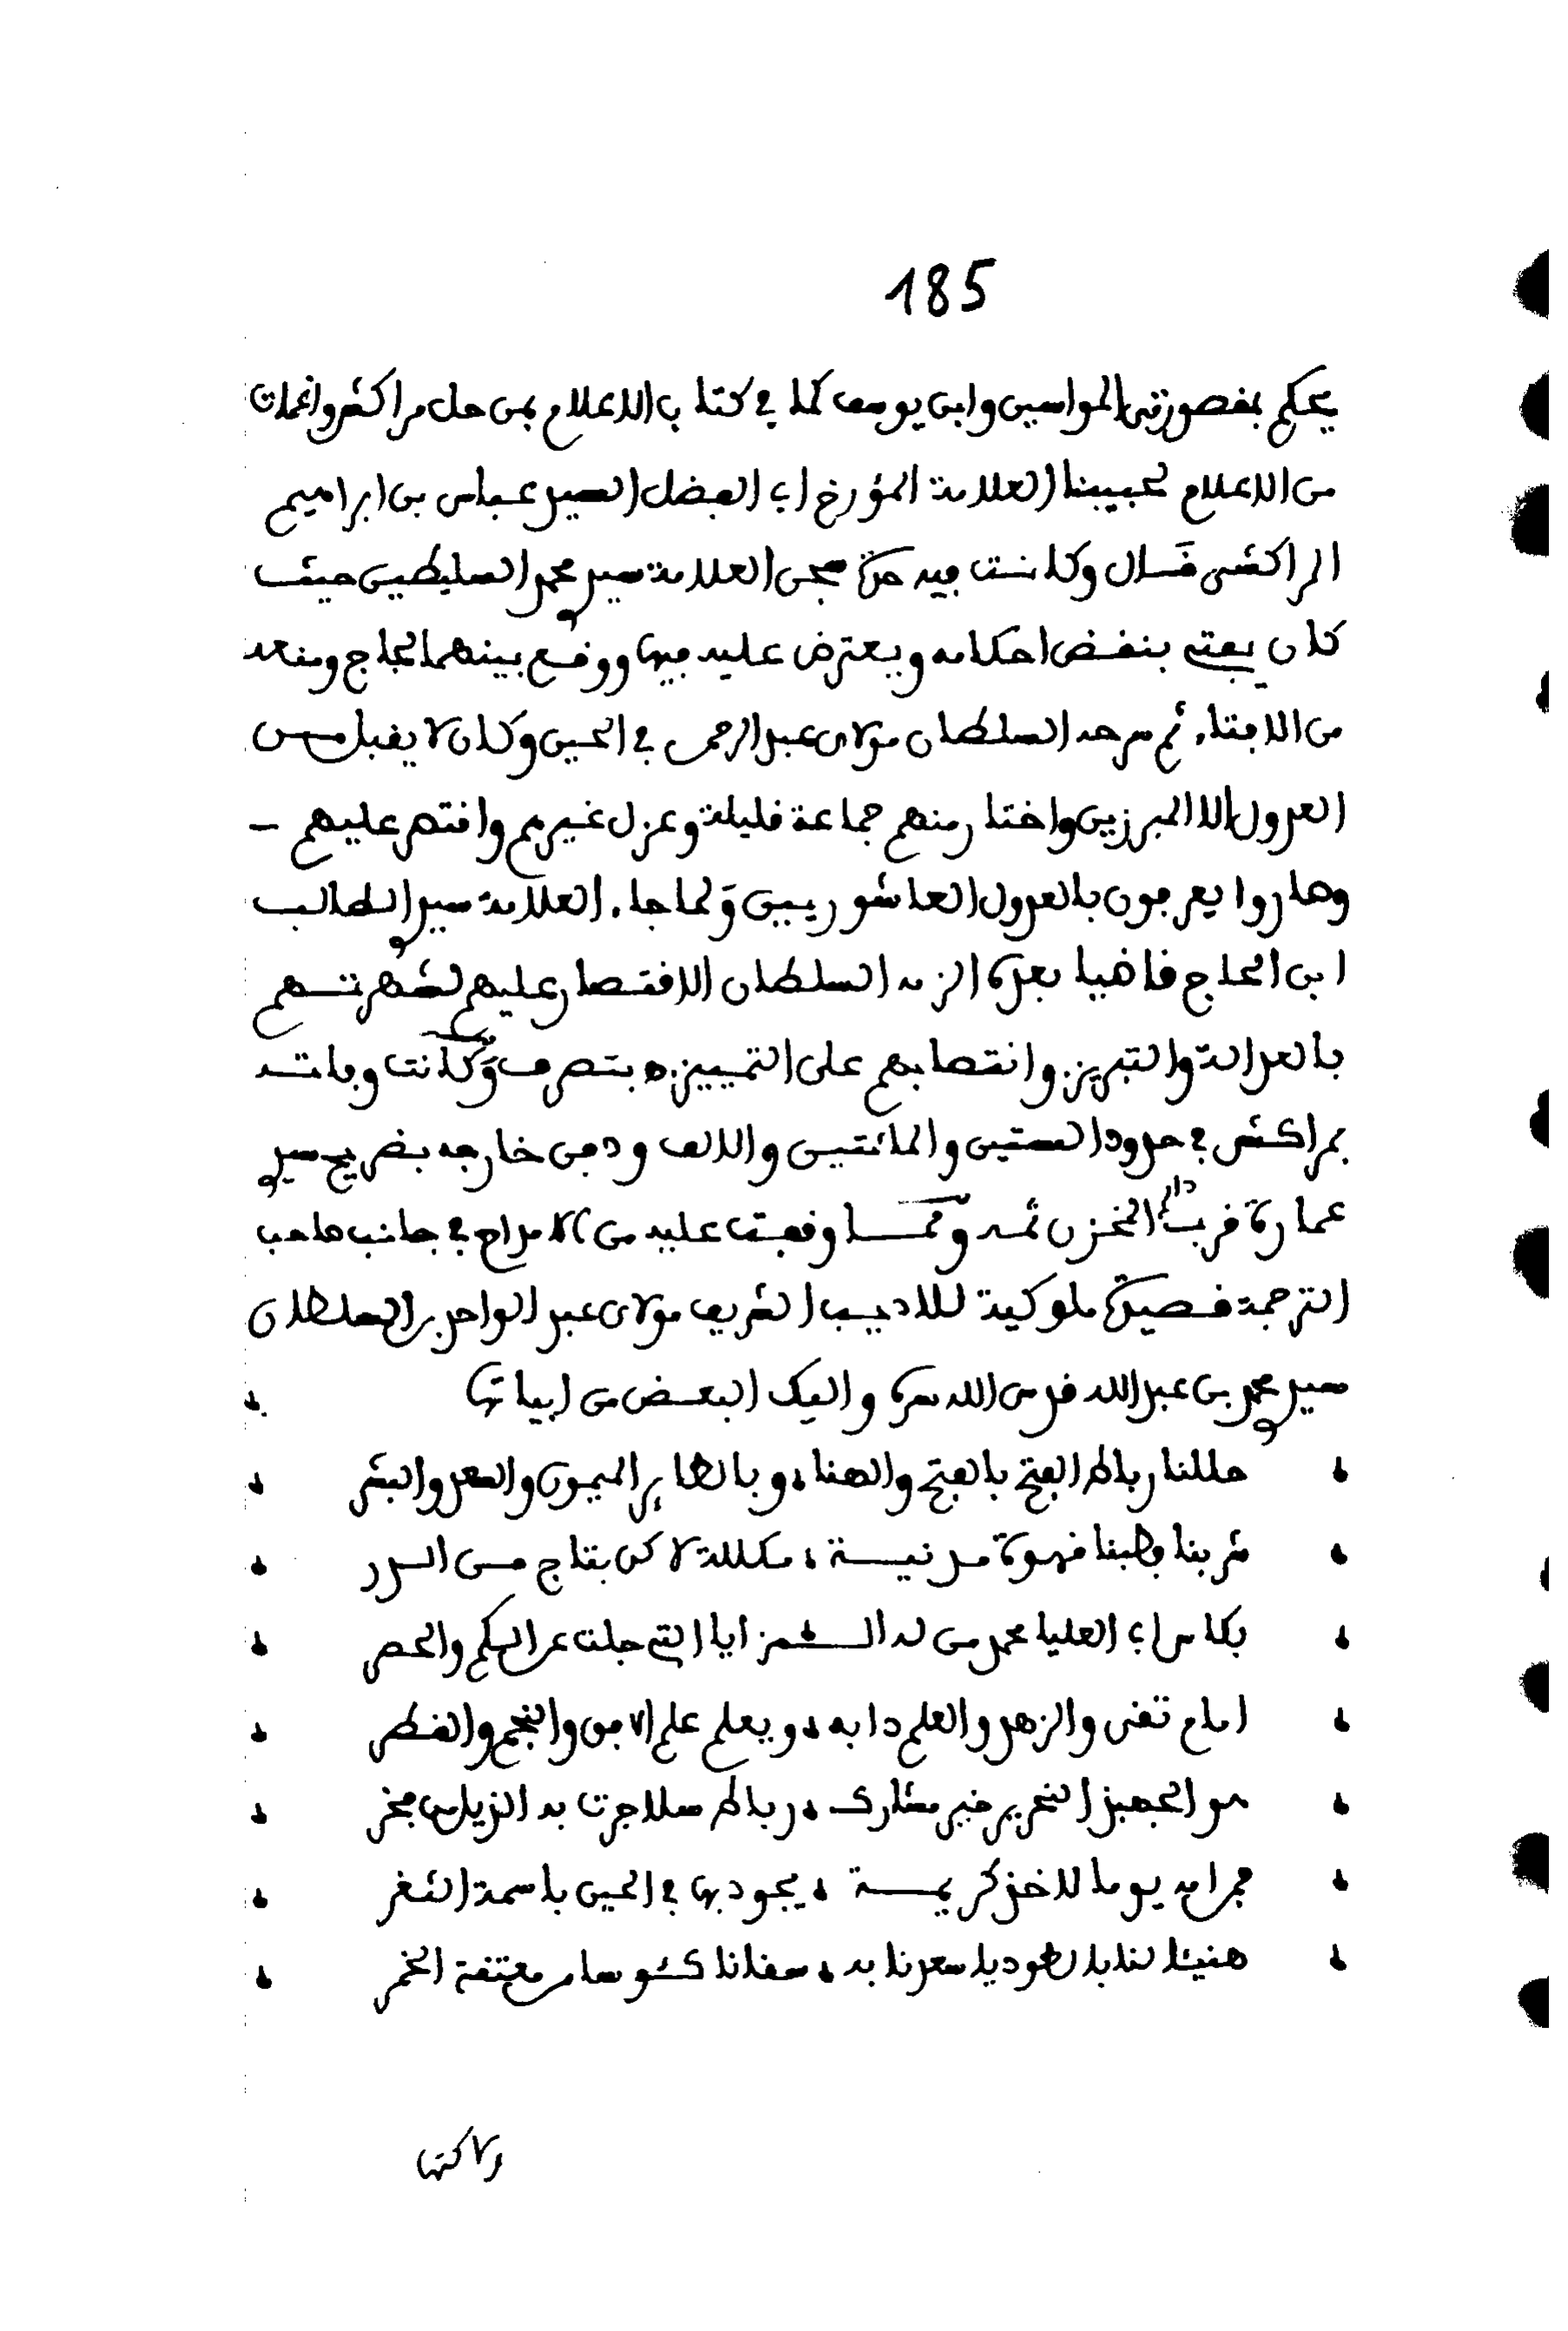 185
يحكم بمقصورتي المواسين وابن يوسف كما في كتاب الاعلام بمن حل مراكش واغمات
من الاعلام لحبيبنا العلامة المؤرخ ابي الفضل السيد عباس بن ابراهيم
المراكشي قال وكانت فيه حدة سجن العلامة سيدي محمد السليطين حيث
كان يفتي بنقض احكامه ويعترض عليه فيها ووقع بينهما لجاج ومنعه
من الافتاء ثم سرحه السلطان مولاي عبد الرحمن في الحين وكان لا يقبل من
العدول الا المبرزين واختار منهم جماعة قليلة وعزل غيرهم واقتصر عليهم –
وصاروا يعرفون بالعدول العاشوريين ولما جاء العلامة سيدي الطالب
ابن الحاج قاضيا بعده الزمه السلطان الاقتصار عليهم لشهرتهم
بالعدالة والتبريز وانتصابهم على التمييز ه بتصرف وكانت وفاته
بمراكش في حدود الستين والمائتين والالف ودفن خارجه بضريح سيدي
عمارة قرب دار المخزن ثمه ومما وقفت عليه من الامداح في جانب صاحب
الترجمة قصيدة ملوكية للاديب الشريف مولاي عبد الواحد بن السلطان
سيدي محمد بن عبد الله قدس الله سره واليك البعض من ابياتها
حللنا رباط الفتح بالفتح والهنا، وبالطاير الميمون والسعد والبشر
شربنا وطبنا قهوة مدنية، مكللة لاكن بتاج من الدرر
بكاس ابي العليا محمد من له الـ، ـمزايا التي جلت عن الكم والحصر
امام تقي والزهد والعلم دابه، ويعلم علم الافق والنجم والقطر
هو الجهبذ النحرير خير مشارك، رباط سلا جرت به الذيل من فخر
هنيئا لنا بل للعود يا سعدنا به، سقانا كئوسا من معتقة الخمر
ولاكنها